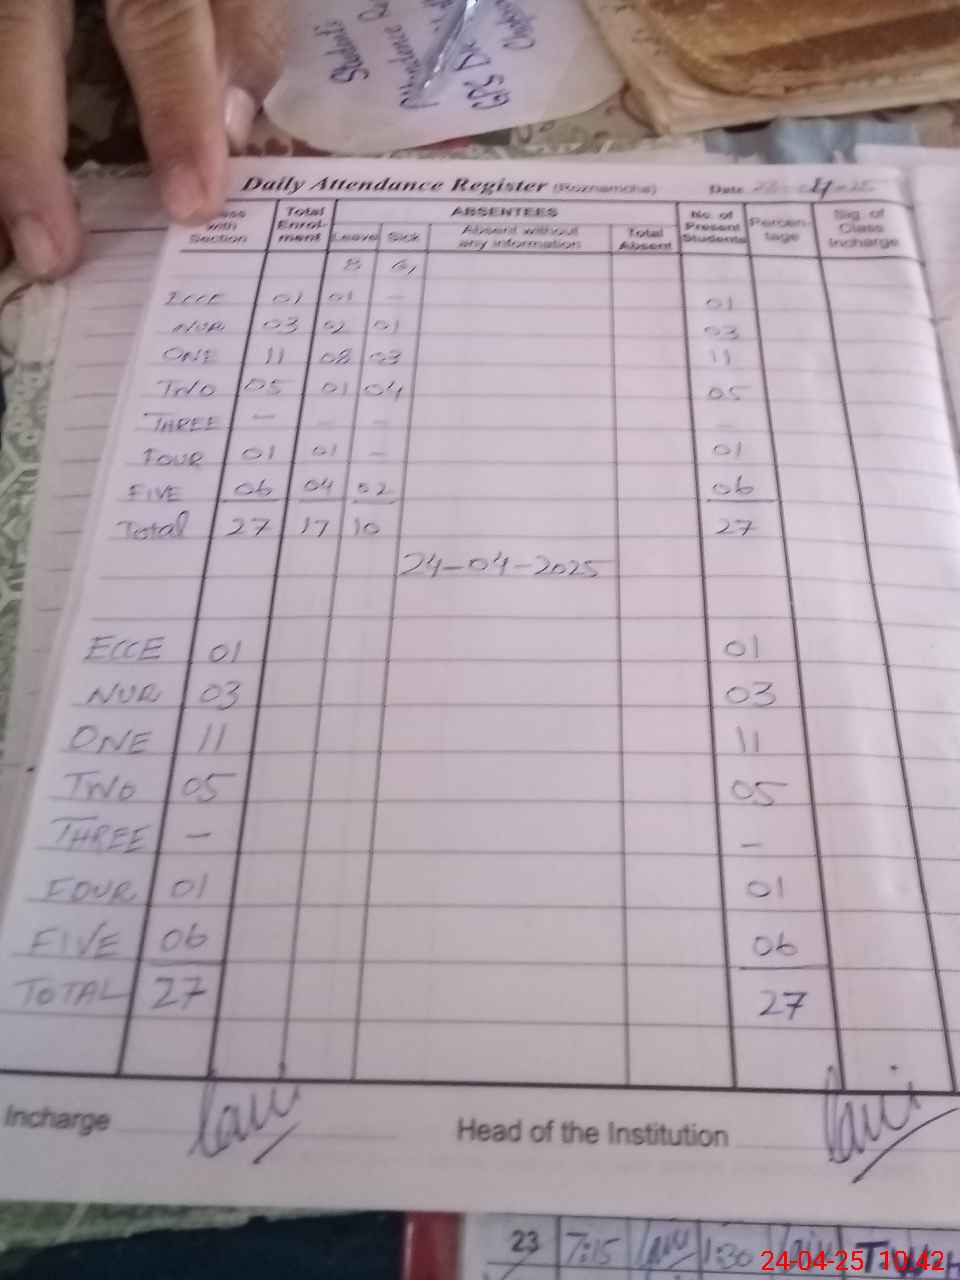 Students
Attendance
Daily Attendance Register (Roznamcha) Date
Class with Section Total Enrol-ment ABSENTEES Leave Sick Absent without any information Total Absent No. of Present Students Percen-tage Sig. of Class Incharge
B G
ECCE 01 01 - 01
NUR 03 02 01 03
ONE 11 08 03 11
TWO 05 01 04 05
THREE - - - -
FOUR 01 01 - 01
FIVE 06 04 02 06
Total 27 17 10 27
24-04-2025
ECCE 01 01
NUR 03 03
ONE 11 11
TWO 05 05
THREE - -
FOUR 01 01
FIVE 06 06
TOTAL 27 27
Incharge Head of the Institution
23 7:15 1:30
24-04-25 10:42